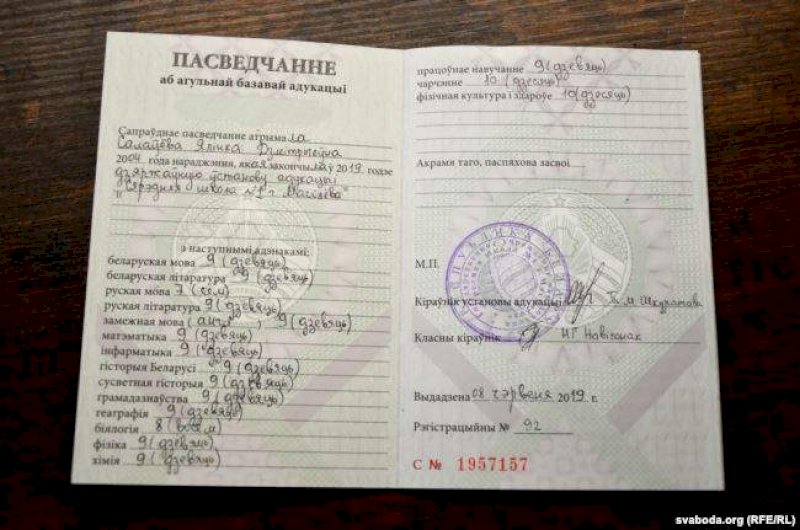 ПАСВЕДЧАННЕ
аб агульнай базавай адукацыі
Сапраўднае пасведчанне атрымала
Салаўёва Яніка Дзмітрыеўна
2004 года нараджэння, якая закончыла ў 2019 годзе
дзяржаўную ўстанову адукацыі
"Сярэдняя школа №1 г. Магілёва"
з наступнымі адзнакамі:
беларуская мова 9 (дзевяць)
беларуская літаратура 9 (дзевяць)
руская мова 7 (сем)
руская літаратура 9 (дзевяць)
замежная мова (англ.) 9 (дзевяць)
матэматыка 9 (дзевяць)
інфарматыка 9 (дзевяць)
гісторыя Беларусі 9 (дзевяць)
сусветная гісторыя 9 (дзевяць)
грамадазнаўства 9 (дзевяць)
геаграфія 9 (дзевяць)
біялогія 8 (восем)
фізіка 9 (дзевяць)
хімія 9 (дзевяць)
працоўнае навучанне 9 (дзевяць)
чарчэнне 10 (дзесяць)
фізічная культура і здароўе 10 (дзесяць)
Акрамя таго, паспяхова засвоі
М.П.
Кіраўнік установы адукацыі Шкуратова
Класны кіраўнік
Выдадзена 08 чэрвеня 2019 г.
Рэгістрацыйны № 92
С № 1957157
svaboda.org (RFE/RL)